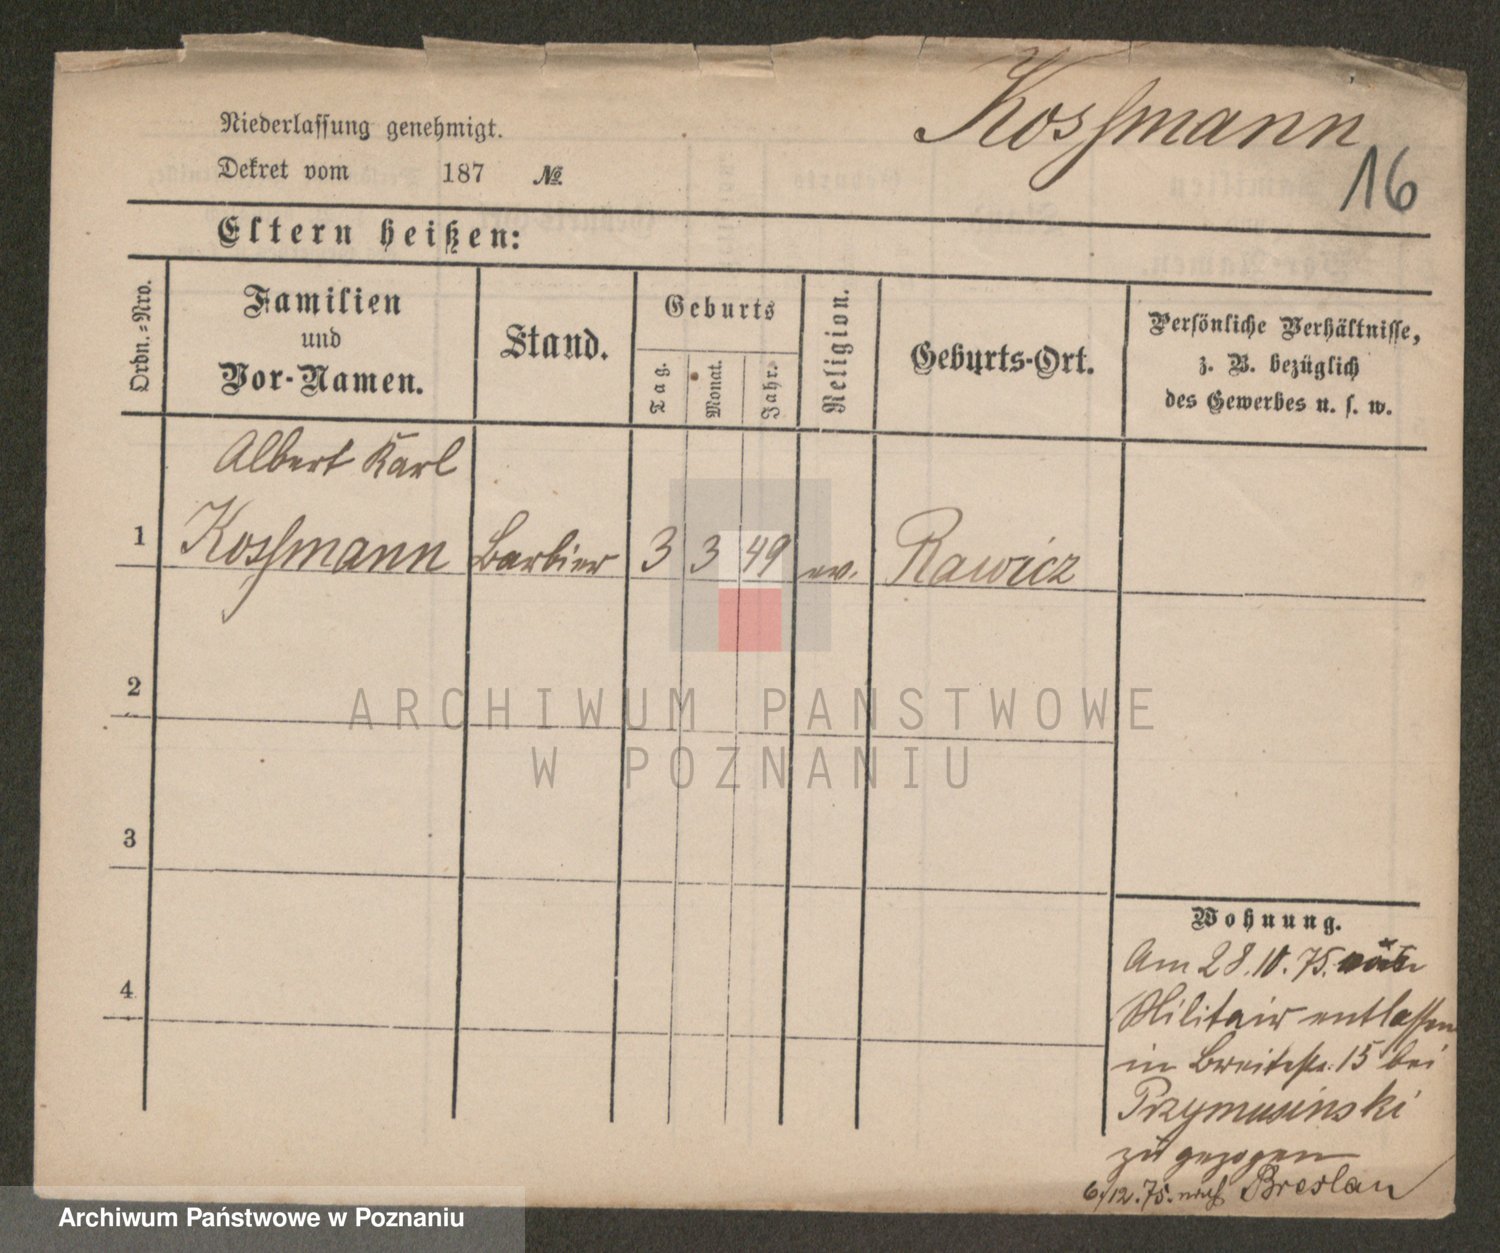 Kossmann
16
Niederlassung genehmigt.
Dekret vom 187 №
Eltern heißen:
Ordn.-Nro.
Familien
und
Vor-Namen.
Stand.
Geburts
Tag.
Monat.
Jahr.
Religion.
Geburts-Ort.
Persönliche Verhältnisse,
z. B. bezüglich
des Gewerbes u. s. w.
Albert Karl
1 Kossmann Barbier 3 3 49 ev. Rawicz
2
3
4
Wohnung.
Am 28.10.75.
Militair entlassen
in Breitestr. 15 bei
Przymusinski
zu gezogen
6/12.75. nach Breslau
ARCHIWUM PAŃSTWOWE
W POZNANIU
Archiwum Państwowe w Poznaniu